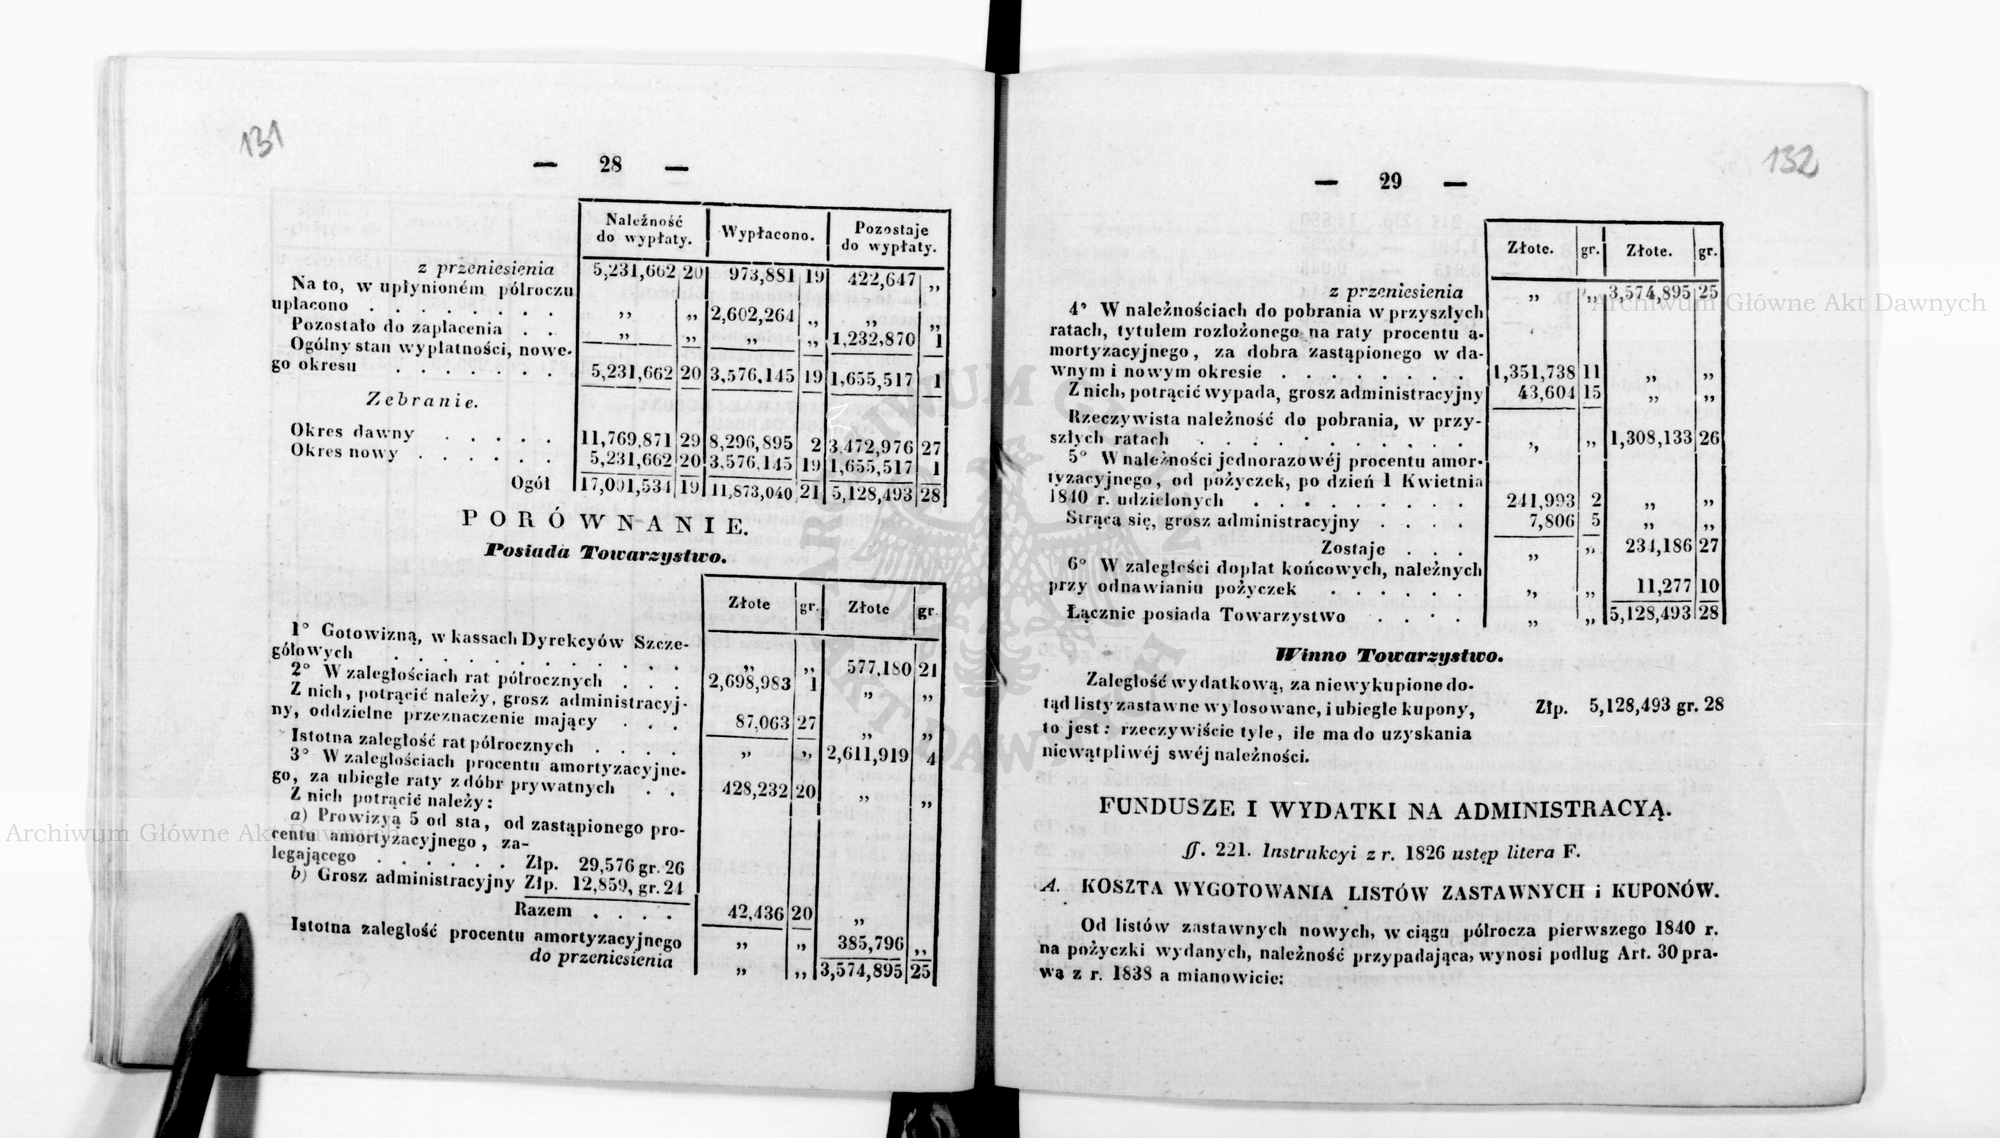 131
— 28 —
Należność do wypłaty. | Wypłacono. | Pozostaje do wypłaty.
z przeniesienia 5,231,662 20 973,881 19 422,647 „
Na to, w upłynioném półroczu
upłacono . . . . . . . . „ „ 2,602,264 „ „ „
Pozostało do zapłacenia . . „ „ „ „ 1,232,870 1
Ogólny stan wypłatności, nowe-
go okresu . . . . . . . 5,231,662 20 3,576,145 19 1,655,517 1
Zebranie.
Okres dawny . . . . . 11,769,871 29 8,296,895 2 3,472,976 27
Okres nowy . . . . . . 5,231,662 20 3,576,145 19 1,655,517 1
Ogół 17,001,534 19 11,873,040 21 5,128,493 28
PORÓWNANIE.
Posiada Towarzystwo.
Złote | gr. | Złote | gr.
1° Gotowizną, w kassach Dyrekcyów Szcze-
gółowych . . . . . . . . . . . „ „ 577,180 21
2° W zaległościach rat półrocznych . . . 2,698,983 1 „ „
Z nich, potrącić należy, grosz administracyj-
ny, oddzielne przeznaczenie mający . . . 87,063 27 „ „
Istotna zaległość rat półrocznych . . . . „ „ 2,611,919 4
3° W zaległościach procentu amortyzacyjne-
go, za ubiegłe raty z dóbr prywatnych . . 428,232 20 „ „
Z nich potrącić należy:
a) Prowizyą 5 od sta, od zastąpionego pro-
centu amortyzacyjnego, za-
legającego . . . . . . Złp. 29,576 gr. 26
b) Grosz administracyjny Złp. 12,859, gr. 24
Razem . . . . 42,436 20 „
Istotna zaległość procentu amortyzacyjnego „ „ 385,796 „
do przeniesienia „ „ 3,574,895 25
132
— 29 —
Złote. | gr. | Złote. | gr.
z przeniesienia „ „ 3,574,895 25
4° W należnościach do pobrania w przyszłych
ratach, tytułem rozłożonego na raty procentu a-
mortyzacyjnego, za dobra zastąpionego w da-
wnym i nowym okresie . . . . . . . . 1,351,738 11 „ „
Z nich, potrącić wypada, grosz administracyjny 43,604 15 „ „
Rzeczywista należność do pobrania, w przy-
szłych ratach . . . . . . . . . . „ „ 1,308,133 26
5° W należności jednorazowéj procentu amor-
tyzacyjnego, od pożyczek, po dzień 1 Kwietnia
1840 r. udzielonych . . . . . . . . . 241,993 2 „ „
Strąca się, grosz administracyjny . . . . 7,806 5 „ „
Zostaje . . . „ „ 234,186 27
6° W zaległości dopłat końcowych, należnych
przy odnawianiu pożyczek . . . . . . „ „ 11,277 10
Łącznie posiada Towarzystwo . . . . „ „ 5,128,493 28
Winno Towarzystwo.
Zaległość wydatkową, za niewykupione do-
tąd listy zastawne wylosowane, i ubiegłe kupony, Złp. 5,128,493 gr. 28
to jest: rzeczywiście tyle, ile ma do uzyskania
niewątpliwéj swéj należności.
FUNDUSZE I WYDATKI NA ADMINISTRACYĄ.
§. 221. Instrukcyi z r. 1826 ustęp litera F.
A. KOSZTA WYGOTOWANIA LISTÓW ZASTAWNYCH i KUPONÓW.
Od listów zastawnych nowych, w ciągu półrocza pierwszego 1840 r.
na pożyczki wydanych, należność przypadająca, wynosi podług Art. 30 pra-
wa z r. 1838 a mianowicie:
Archiwum Główne Akt Dawnych
Archiwum Główne Akt Dawnych
ARCHIWUM GŁÓWNE AKT DAWNYCH